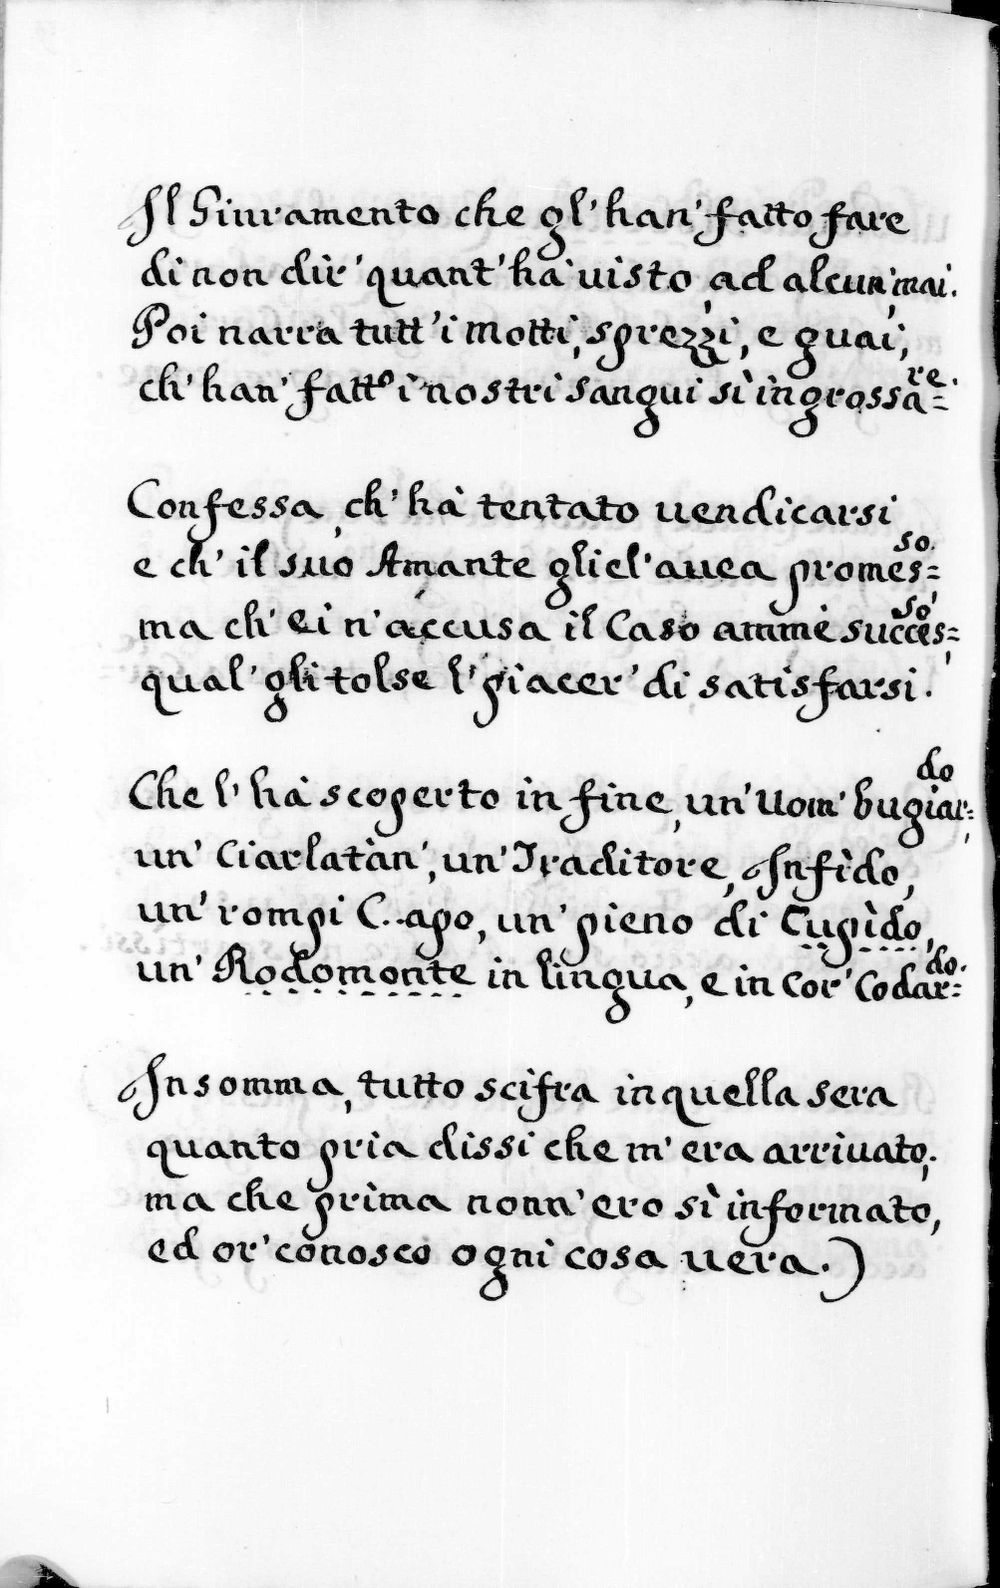 Il Giuramento che gl' han' fatto fare
di non dir' quant' hà visto, ad alcun' mai.
Poi narra tutt' i motti, sprezzi, e guai,
ch' han' fatt° i nostri sangui sì ingrossa=re.
Confessa, ch' hà tentato uendicarsi
e ch' il suo Amante gliel' auea promes=so.
ma ch' ei n' accusa il Caso ammè succes=so'
qual' gli tolse l' piacer' di satisfarsi.
Che l' hà scoperto in fine, un' Uom' bugiar=do,
un' Ciarlatàn', un' Traditore, Infìdo,
un' rompi C..apo, un' pieno di Cupìdo,
un' Rodomonte in lingua, e in cor' Codar=do.
Insomma, tutto scifra in quella sera
quanto pria dissi che m' era arriuato;
ma che prìma nonn' ero sì informato,
ed or' conosco ogni cosa uera.)